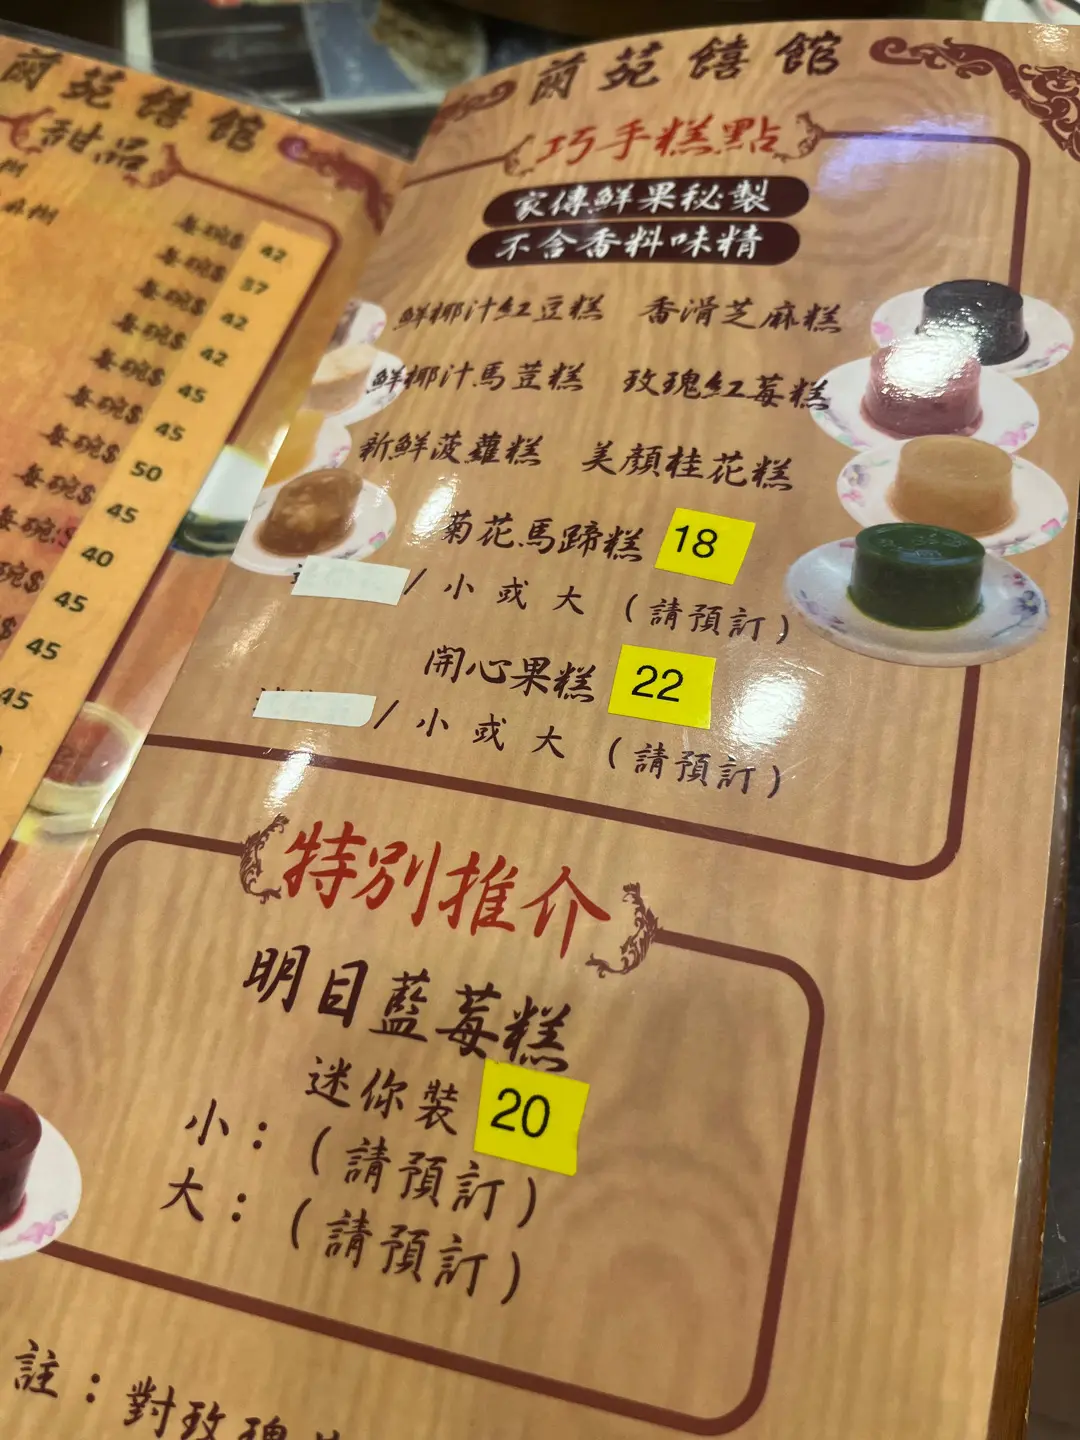 蘭苑饎館
甜品
麻糊
每碗$ 42
每碗$ 37
每碗$ 42
每碗$ 42
每碗$ 45
每碗$ 45
每碗$ 50
每碗$ 45
每碗$ 40
碗$ 45
$ 45
45
蘭苑饎館
巧手糕點
家傳鮮果秘製
不含香料味精
鮮椰汁紅豆糕 香滑芝麻糕
鮮椰汁馬荳糕 玫瑰紅莓糕
新鮮菠蘿糕 美顏桂花糕
菊花馬蹄糕 18
/ 小 或 大 (請預訂)
開心果糕 22
/ 小 或 大 (請預訂)
特別推介
明目藍莓糕
迷你裝 20
小：(請預訂)
大：(請預訂)
註：對玫瑰